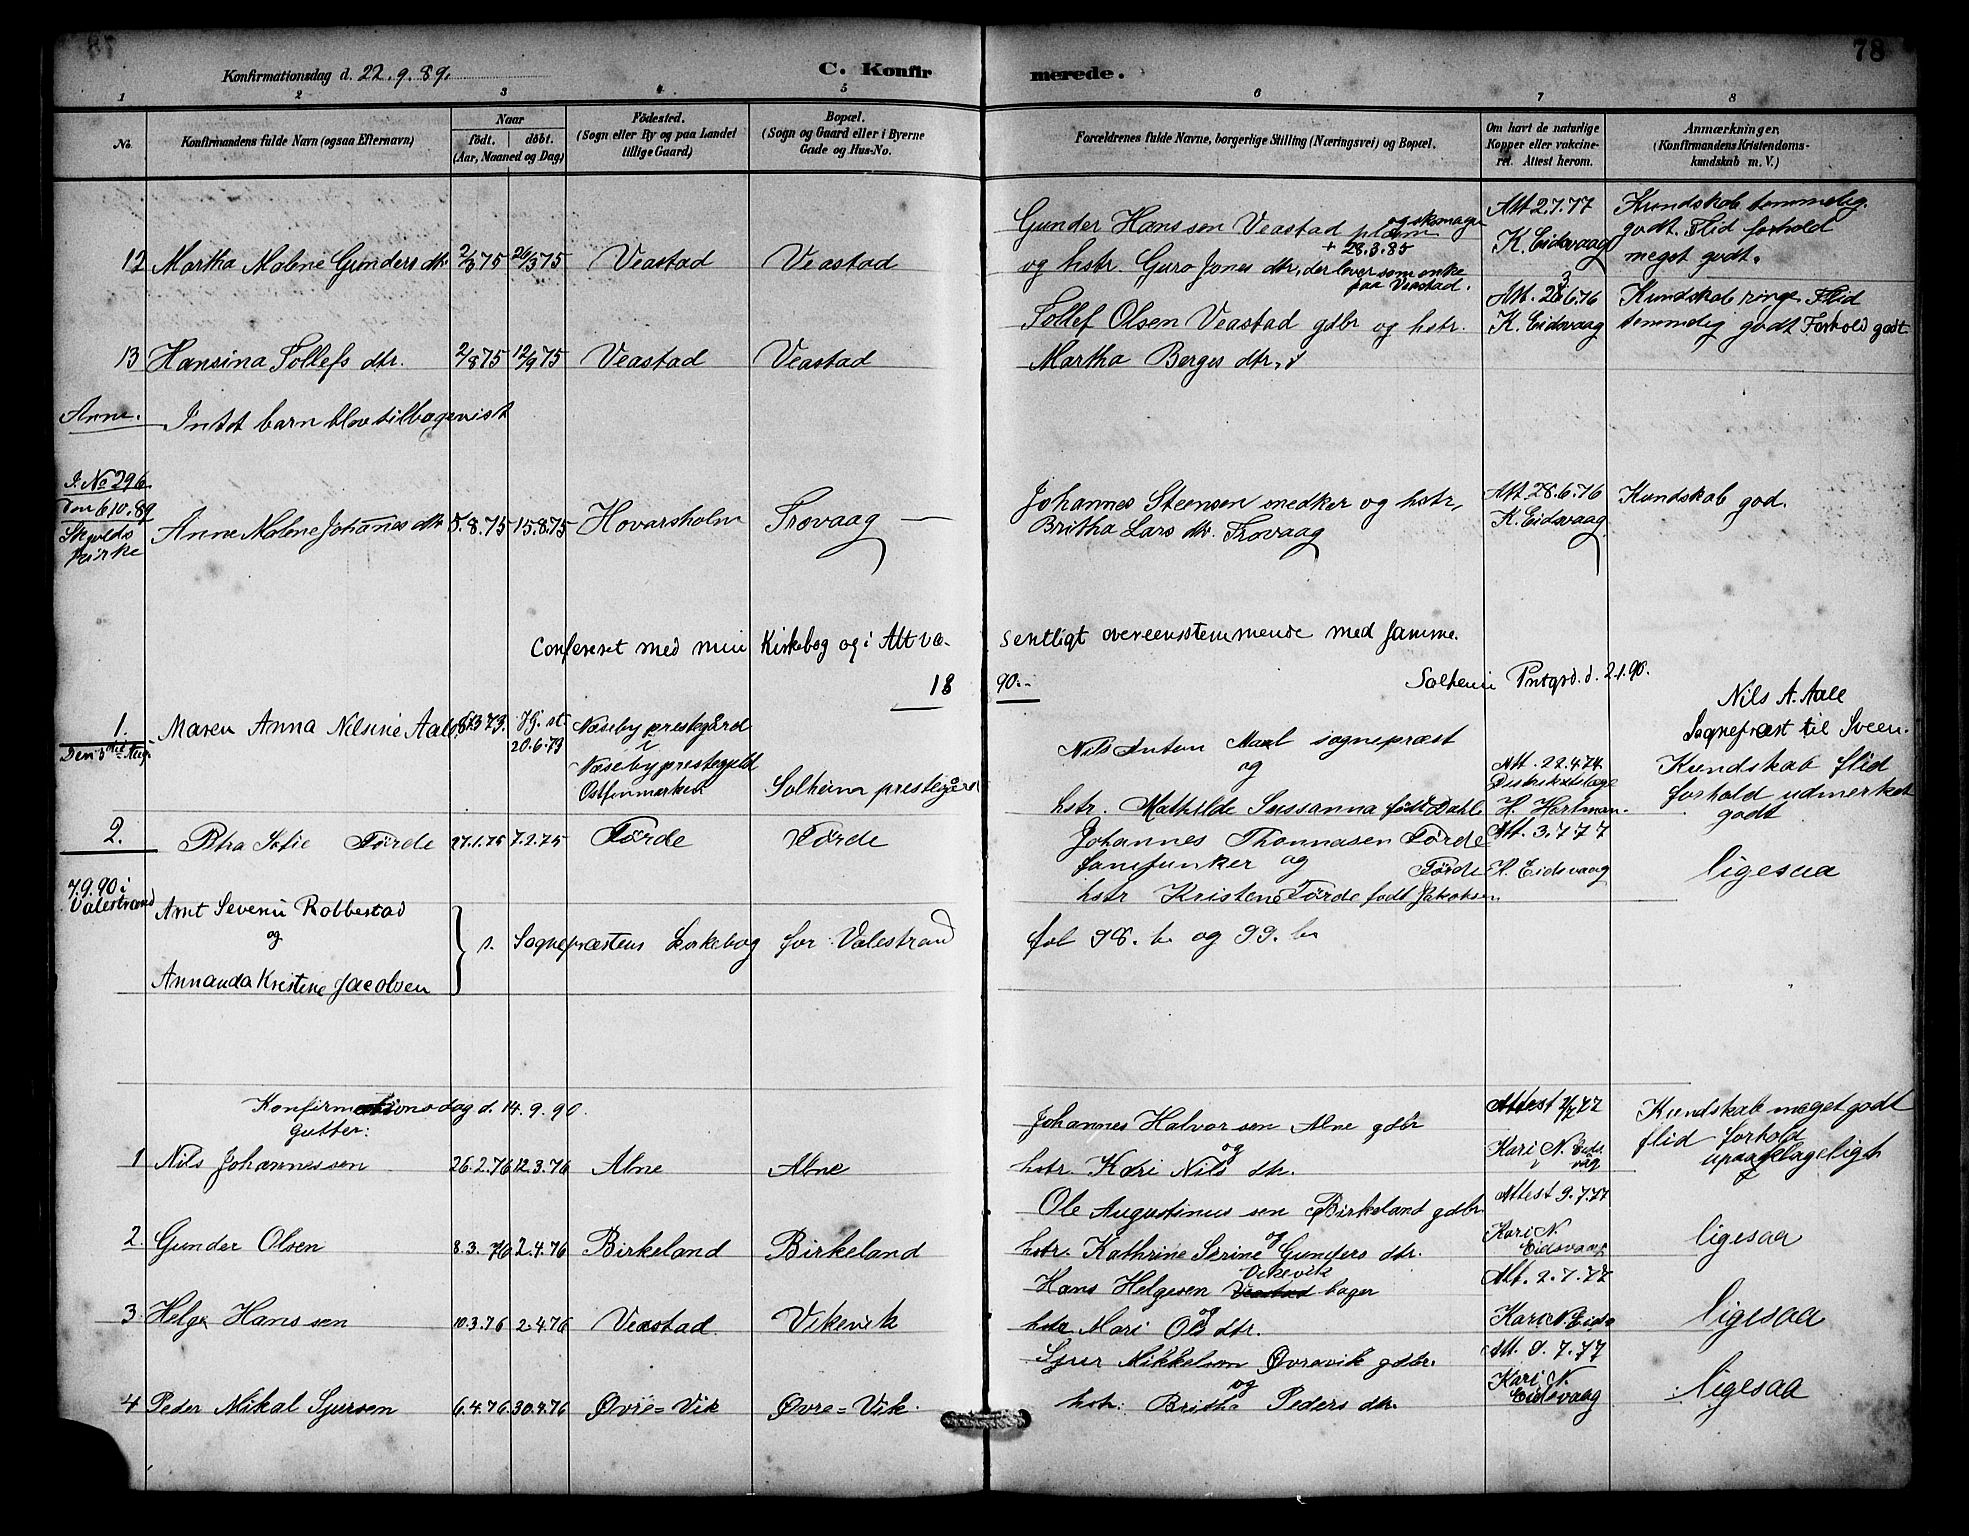 78
Konfirmationsdag d. 22.9.89.
C. Konfirmerede.
1 2 3 4 5 6 7 8
No.
Konfirmandens fulde Navn (ogsaa Efternavn)
Naar
født. døbt.
(Aar, Maaned og Dag)
Fødested.
(Sogn eller By og paa Landet
tillige Gaard)
Bopæl.
(Sogn og Gaard eller i Byerne
Gade og Hus-No.
Forældrenes fulde Navne, borgerlige Stilling (Næringsvei) og Bopæl.
Om havt de naturlige
Kopper eller vakcine-
ret. Attest herom.
Anmærkninger.
(Konfirmandens Kristendoms-
kundskab m. V.)
12 Martha Malene Gunders dtr 2/3 75 26/3 75 Veastad Veastad
Gunder Hanssen Veastad plsm og skomager
+ 28.3.85
og hstr. Guro Jones dtr, der lever som enke
paa Veastad.
Att 2.7.77
K. Eidsvaag
Kundskab temmelig
godt. Flid forhold
meget godt.
13 Hansina Tollefs dtr. 2/8 75 12/9 75 Veastad Veastad
Tollef Olsen Veastad gdbr og hstr.
Martha Berges dtr,
Att. 28.6.76
K. Eidsvaag
Kundskab ringe Flid
temmelig godt Forhold godt
Anm. Intet barn blev tilbagevist
J. No 296
Den 6/10.89
Skjolds
kirke
Anne Malene Johannes dtr 5.8.75 15.8.75 Hovarsholm Trovaag —
Johannes Steensen snedker og hstr,
Britha Lars dtr. Trovaag
Att 28.6.76
K. Eidsvaag
Kundskab god.
Confereret med min Kirkebog og i Alt væ-
sentligt overeensstemmende med samme.
Solheim Prstgrd. d. 2.1.90.
Nils A. Aall
Sognepræst til Sveen.
18 90.-
1.
Maren Anna Nilsine Aall 73 Hj. st.
20.6.73
Næseby prestegård
i
Næseby prestegjeld
Ostfinmarken
Solheim prestegård
Nils Anton Aall sognepræst
og
hstr. Mathilde Sussanna født Dahl
Att. 22.4.74.
Distriktslæge
H. Hartman.
Kundskab flid
forhold udmerket
godt
2.
Petra Sofie Førde 27.1.75 7.2.75 Førde Førde
Johannes Thomasen Førde
og Førde
hstr Kristene Førde født Jakobsen
Att. 3.7.77
K. Eidsvaag
ligesaa
7.9.90 i
Valestrand
Arnt Severin Robbestad
og
Annanda Kristine Jacobsen
s. Sognepræstens kirkebog for Valestrand
fol 98. b. og 99. b.
Konfirmationsdag d. 14.9.90.
Gutter:
1 Nils Johannessen 26.2.76 12.3.76 Alne Alne
Johannes Halvorsen Alne gdbr
og
hstr. Kari Nils dtr.
Attest 2/7 77
Kari N. Eids-
vag
Kundskab meget godt
flid forhold
upaaklageligt
2. Gunder Olsen 8.3.76 2.4.76 Birkeland Birkeland
Ole Augustinus sen Birkeland gdbr
og
hstr. Kathrine Serine Gunders dtr.
Attest 9.7.77
Kari N.
Eidsvaag
ligesaa
3 Helge Hanssen 10.3.76 2.4.76 Veastad. Vikevik
Vikevik
Hans Helgesen Veastad bager
og
hstr Mari Ols dtr.
Att. 2.7.77
Kari N. Eids
ligesaa
4 Peder Mikal Sjursen 6.4.76 30.4.76 Øvre=Vik Øvre=Vik.
Sjur Mikkelsen Øvrevik gdbr.
og
hstr. Britha Peders dtr.
Att. 9.7.77
Kari N.
Eidsvaag
ligesaa